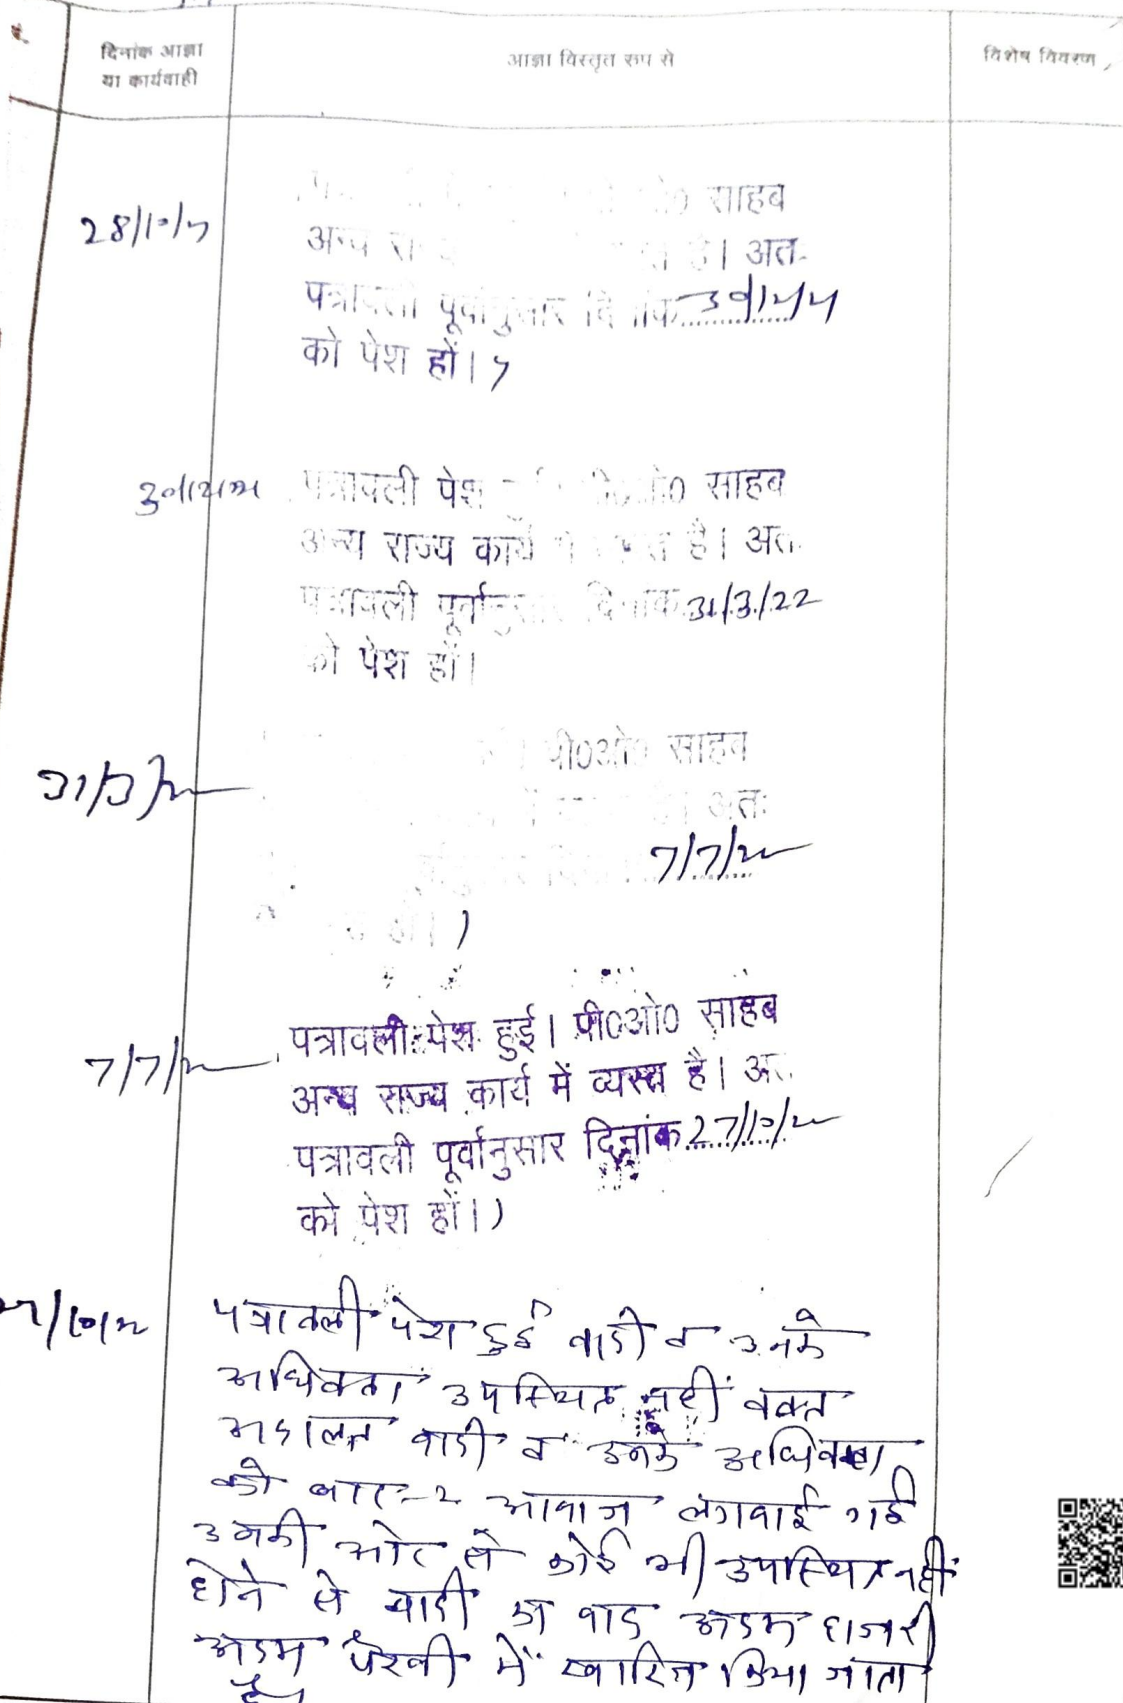 दिनांक आज्ञा
या कार्यवाही
आज्ञा विस्तृत रूप से
विशेष विवरण
28/10/
साहब
अन्य है। अतः
पत्रावली पूर्वानुसार दिनांक
को पेश हों।
पत्रावली पेश साहब
अन्य राज्य कार्य है। अतः
पत्रावली पूर्वानुसार दिनांक 31/3/22
को पेश हों।
31/3/22
पी0ओ0 साहब
अतः
7/7/22
हों।
7/7/22
पत्रावली पेश हुई। पी0ओ0 साहब
अन्य राज्य कार्य में व्यस्त है। अतः
पत्रावली पूर्वानुसार दिनांक 27/10/22
को पेश हों।
27/10/22
पत्रावली पेश हुई वादी व उनके
अधिवक्ता उपस्थित नहीं वक्त
अदालत वादी व उनके अधिवक्ता
को बार-2 आवाज लगवाई गई
उनकी ओर से कोई भी उपस्थित नहीं
होने से वादी का वाद अदम हाजरी
अदम पैरवी में खारिज किया जाता
है